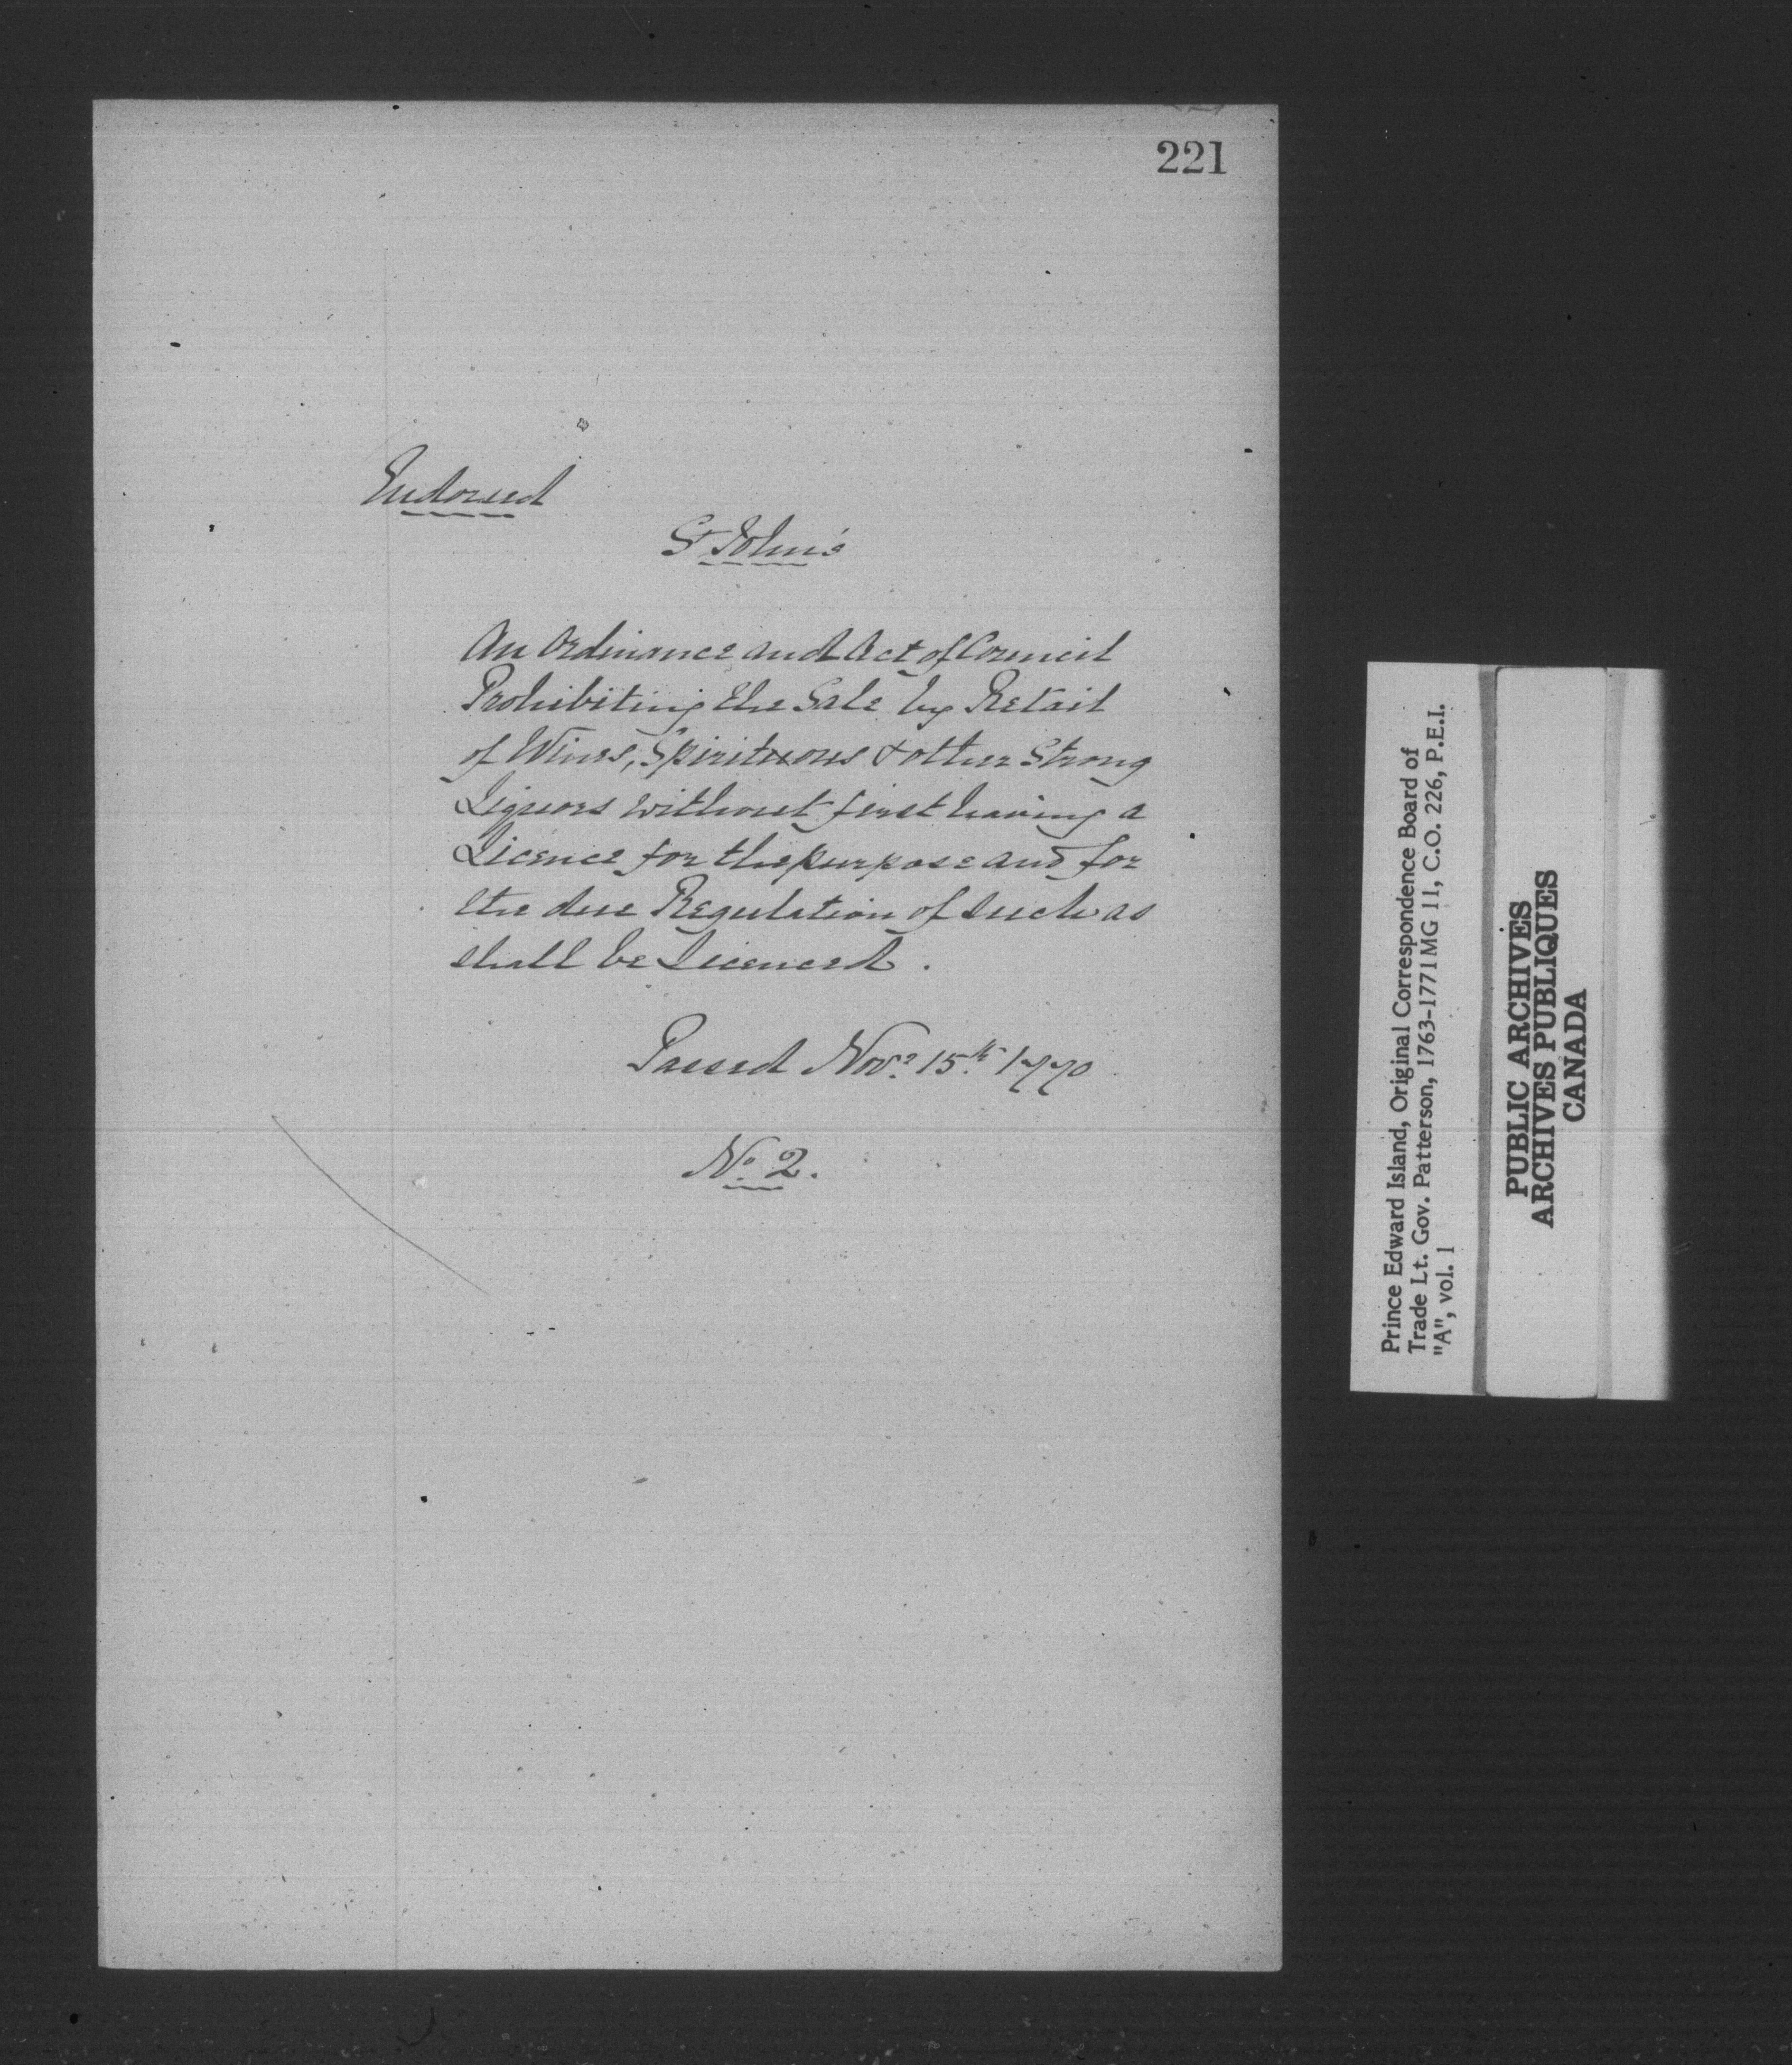 221
Endorsed
St John's
An Ordinance and Act of Council
Prohibiting the Sale by Retail
of Wines, Spirituous & other Strong
Liquors without first having a
Licence for the purpose and for
the due Regulation of such as
shall be Licenced.
Passed Novr. 15th 1770
No. 2.
Prince Edward Island, Original Correspondence Board of
Trade Lt. Gov. Patterson, 1763-1771 MG 11, C.O. 226, P.E.I.
"A", vol. 1
PUBLIC ARCHIVES
ARCHIVES PUBLIQUES
CANADA